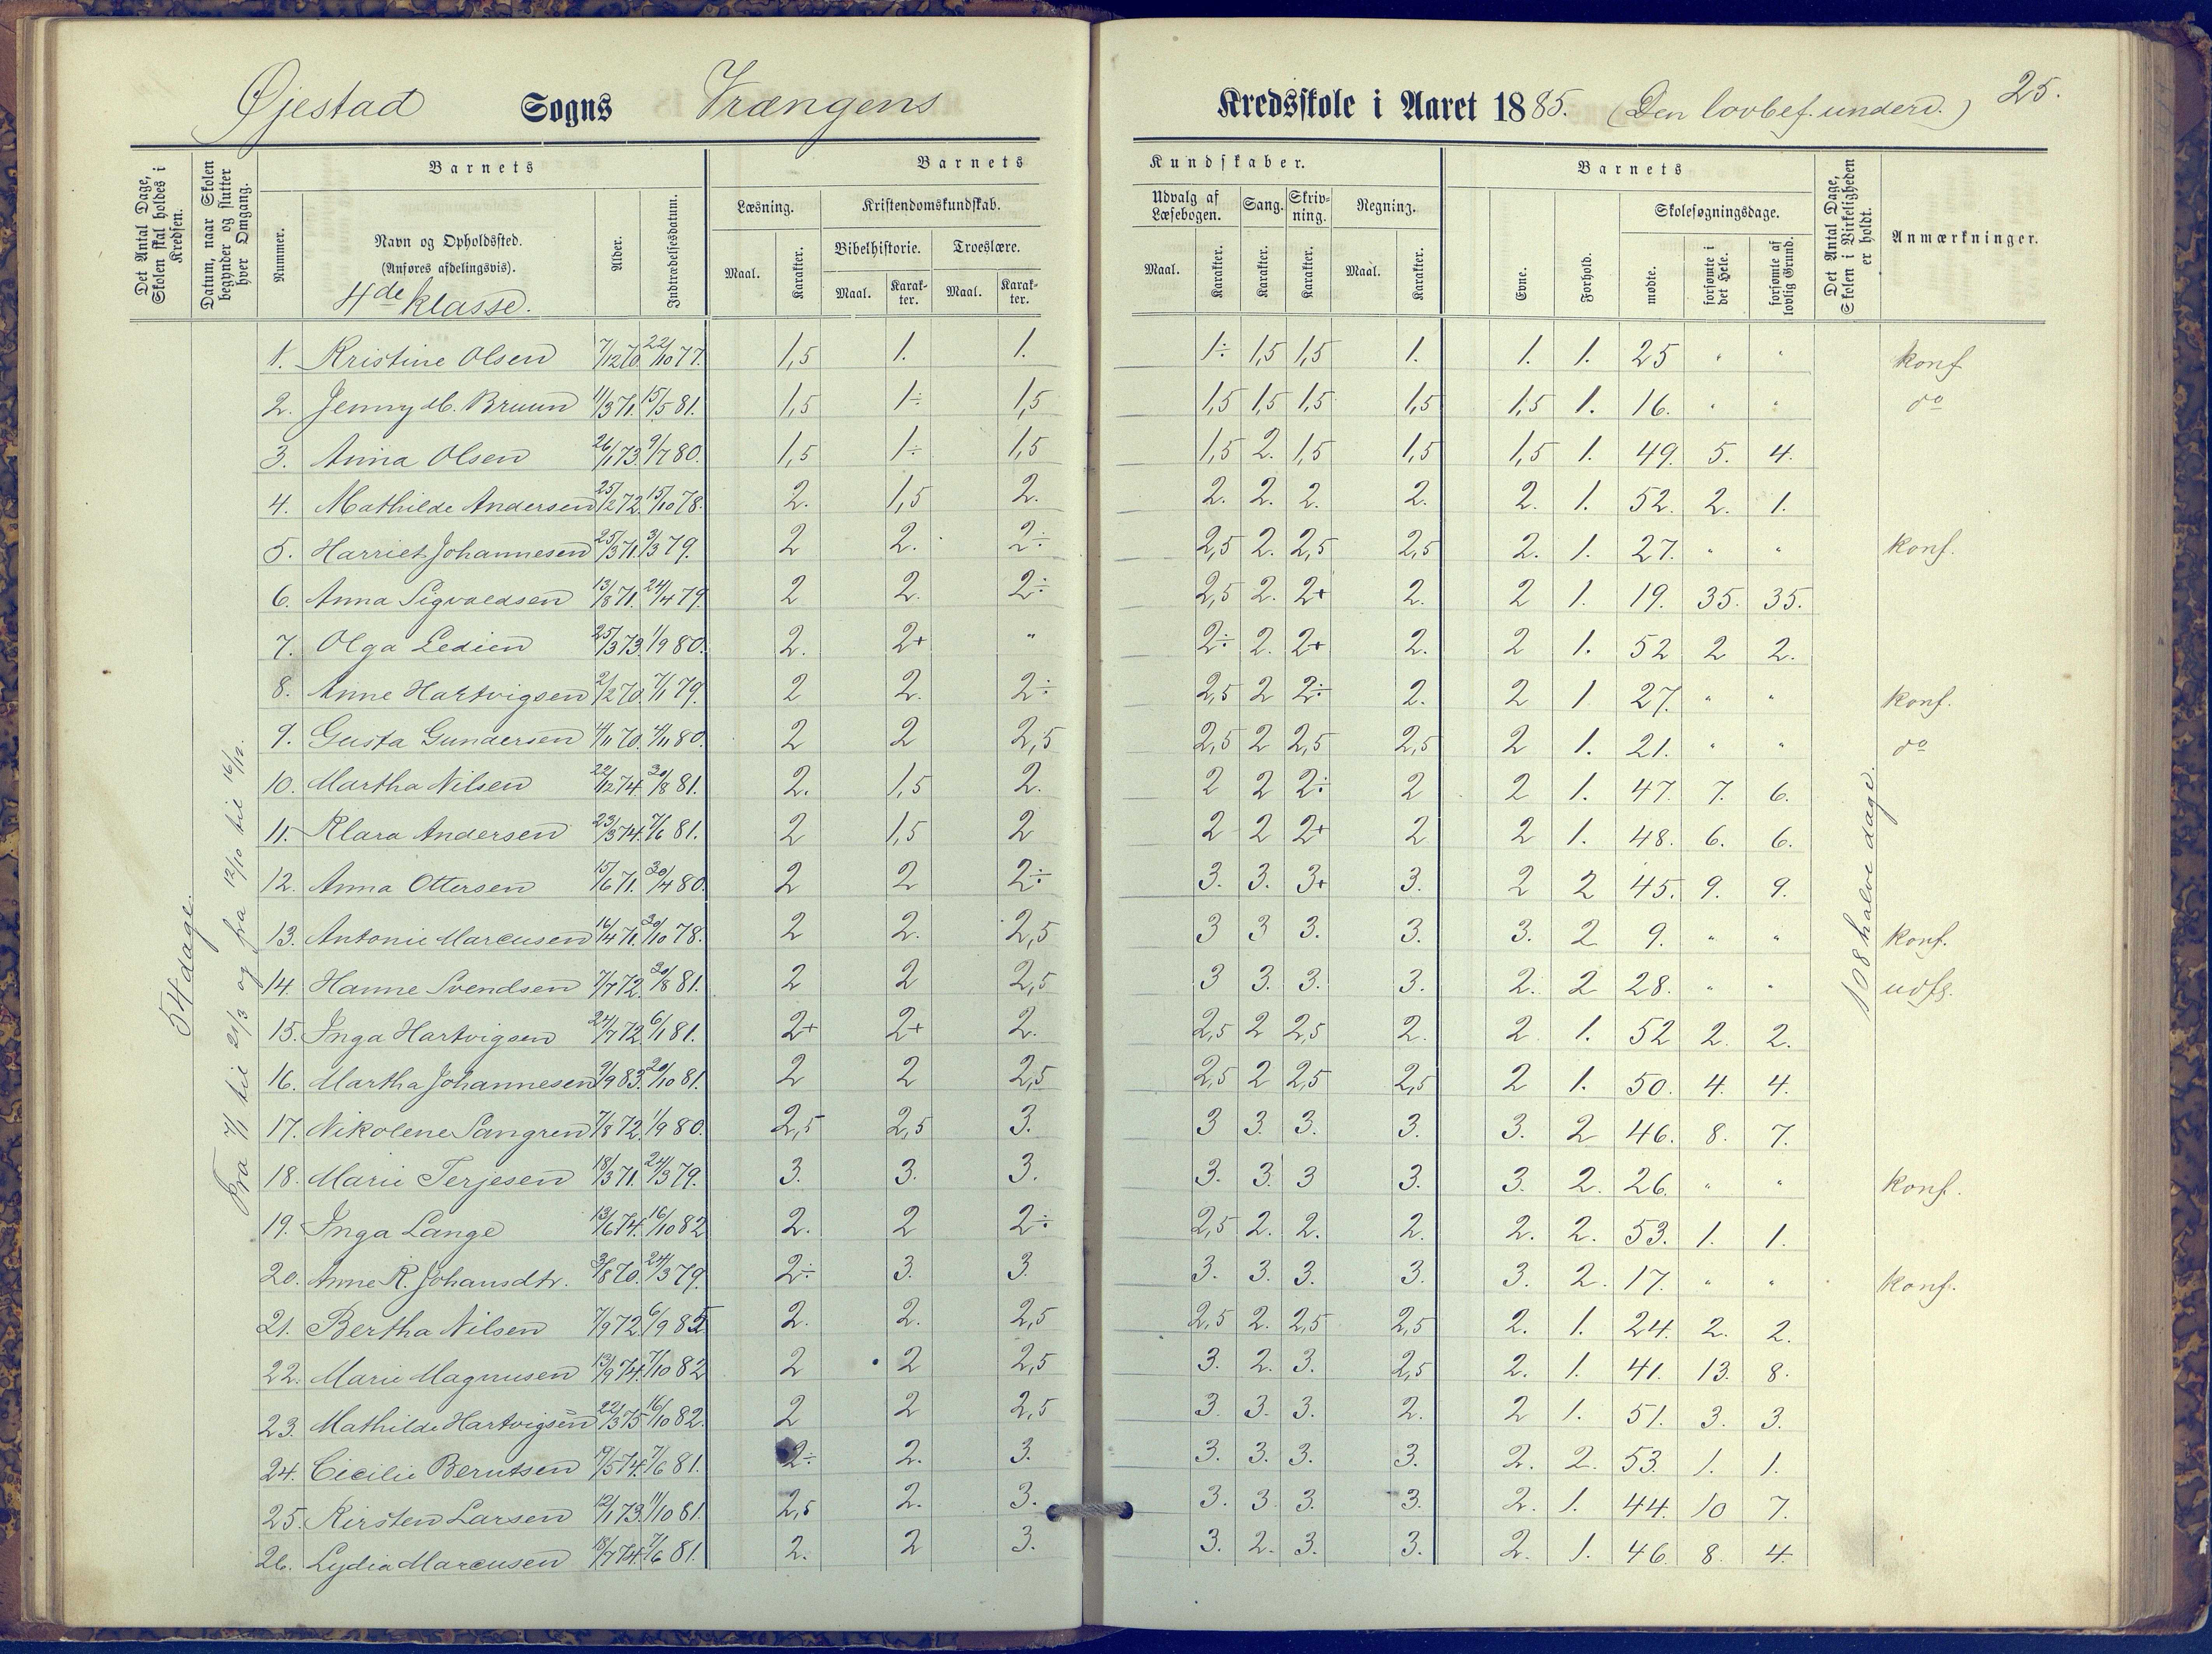 Øjestad Sogns Vrængens Kredsskole i Aaret 1885. (Den lovbef. underv.) 25.
Det Antal Dage, Skolen skal holdes i Kredsen.
Datum, naar Skolen begynder og slutter hver Omgang.
Barnets
Nummer.
Navn og Opholdssted.
(Anføres afdelingsvis).
4de klasse.
Alder.
Indtrædelsesdatum.
Barnets Kundskaber.
Læsning. Maal. Karakter.
Kristendomskundskab.
Bibelhistorie. Maal. Karakter.
Troeslære. Maal. Karakter.
Udvalg af Læsebogen. Maal. Karakter.
Sang. Karakter.
Skrivning. Karakter.
Regning. Maal. Karakter.
Barnets
Evne. Forhold.
Skolesøgningsdage.
mødte. forsømte i det Hele. forsømte af lovlig Grund.
Det Antal Dage, Skolen i Virkeligheden er holdt.
Anmærkninger.
54 dage.
Fra 7/1 til 21/3 og fra 12/10 til 16/12.
108 halve dage.
1. Kristine Olsen 7/12 70. 22/10 77. 1,5 1. 1. 1÷ 1,5 1,5 1. 1. 1. 25 " " konf
2. Jenny M. Bruun 11/3 71. 15/5 81. 1,5 1÷ 1,5 1,5 1,5 1,5 1,5 1,5 1. 16. " " do
3. Anna Olsen 26/1 73. 9/7 80. 1,5 1÷ 1,5 1,5 2. 1,5 1,5 1,5 1. 49. 5. 4.
4. Mathilde Andersen 25/2 72. 15/10 78. 2. 1,5 2. 2. 2. 2. 2. 2. 1. 52. 2. 1.
5. Harriet Johannesen 25/3 71. 3/3 79. 2 2. 2÷ 2,5 2. 2,5 2,5 2. 1. 27. " " konf.
6. Anna Sigvaldsen 13/8 71. 24/4 79. 2 2. 2÷ 2,5 2. 2+ 2. 2 1. 19. 35. 35.
7. Olga Ledien 25/3 73. 1/9 80. 2. 2+ " 2÷ 2. 2+ 2. 2 1. 52 2 2.
8. Anne Hartvigsen 2/2 70. 7/1 79. 2 2. 2÷ 2,5 2 2÷ 2. 2 1 27. " " konf.
9. Gusta Gundersen 4/11 70. 4/11 80. 2 2 2,5 2,5 2 2,5 2,5 2 1. 21. " " do
10. Martha Nilsen 22/12 74. 30/8 81. 2. 1,5 2. 2 2 2÷ 2 2 1. 47. 7. 6.
11. Klara Andersen 23/3 74. 7/6 81. 2 1,5 2 2 2 2+ 2 2 1. 48. 6. 6.
12. Anna Ottersen 15/6 71. 30/4 80. 2 2 2÷ 3. 3. 3+ 3. 2 2 45. 9. 9.
13. Antonie Marcusen 16/4 71. 30/10 78. 2 2. 2,5 3 3 3. 3. 3. 2 9. " " konf.
14. Hanne Svendsen 7/7 72. 30/8 81. 2 2 2,5 3 3. 3. 3. 2. 2 28. " " udfl.
15. Inga Hartvigsen 24/7 72. 6/1 81. 2+ 2+ 2. 2,5 2 2,5 2. 2 1. 52 2. 2.
16. Martha Johannesen 9/9 83. 20/10 81. 2 2 2,5 2,5 2 2,5 2,5 2 1. 50. 4. 4.
17. Nikolene Sangren 7/8 72. 1/9 80. 2,5 2,5 3. 3 3. 3. 3. 3. 2 46. 8. 7.
18. Marie Terjesen 18/3 71. 24/3 79. 3. 3. 3. 3. 3. 3 3. 3. 2. 26. " " konf.
19. Inga Lange 13/6 74. 16/10 82 2. 2 2÷ 2,5 2. 2. 2. 2. 2. 53. 1. 1.
20. Anne K. Johansdtr. 3/8 70. 24/3 79. 2÷ 3. 3. 3. 3. 3. 3. 3. 2. 17. " " konf.
21. Bertha Nilsen 7/9 72. 6/9 85 2. 2. 2,5 2,5 2. 2,5 2,5 2. 1. 24. 2. 2.
22. Marie Magnusen 13/9 74. 7/10 82 2 2 2,5 3. 2. 3. 2,5 2. 1. 41. 13. 8.
23. Mathilde Hartvigsen 22/3 75 16/10 82. 2 2 2,5 3. 3. 3. 2. 2 1. 51. 3. 3.
24. Cicilie Berntsen 19/5 74. 7/6 81. 2÷ 2. 3. 3. 3. 3. 3. 2. 2. 53. 1. 1.
25. Kirsten Larsen 12/1 73. 11/10 81. 2,5 2. 3. 3. 3. 3. 3. 2. 1. 44. 10 7.
26. Lydia Marcusen 18/7 74. 7/6 81. 2. 2 3. 3. 2. 3. 3. 2. 1. 46. 8. 4.